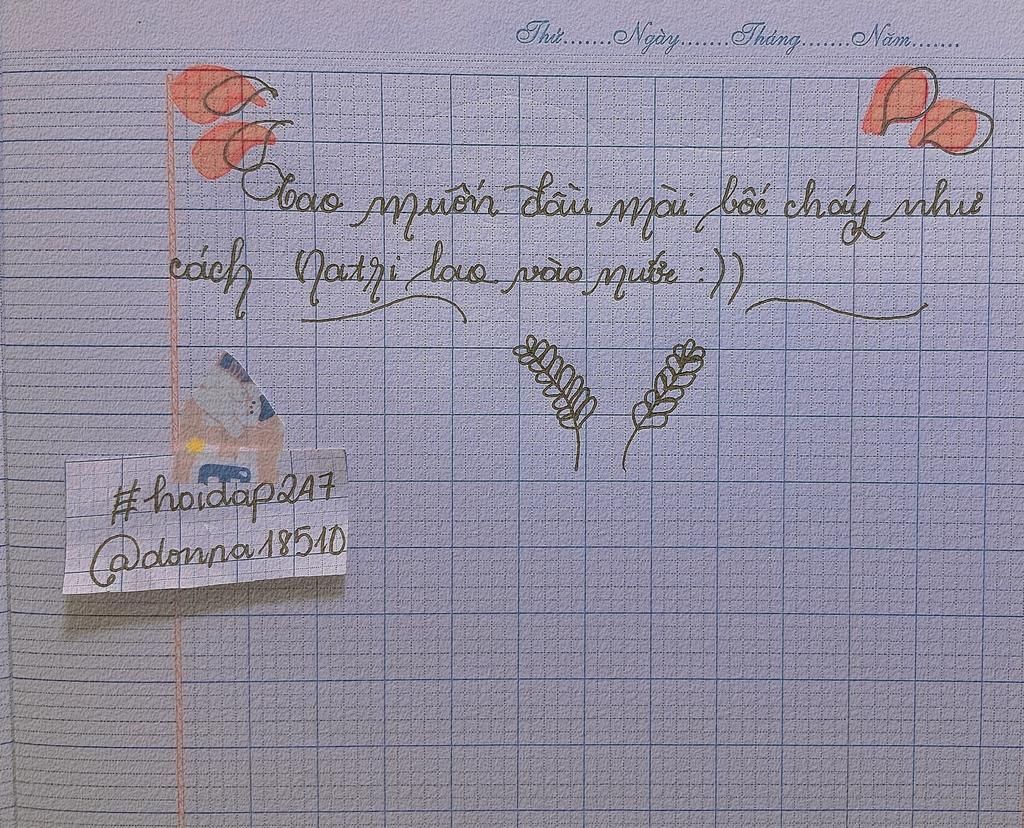 Thứ.......Ngày.......Tháng.......Năm.......
Tao muốn đầu mài bốc cháy như
cách Natri lao vào nước :))
#hoidap247
@donna18510